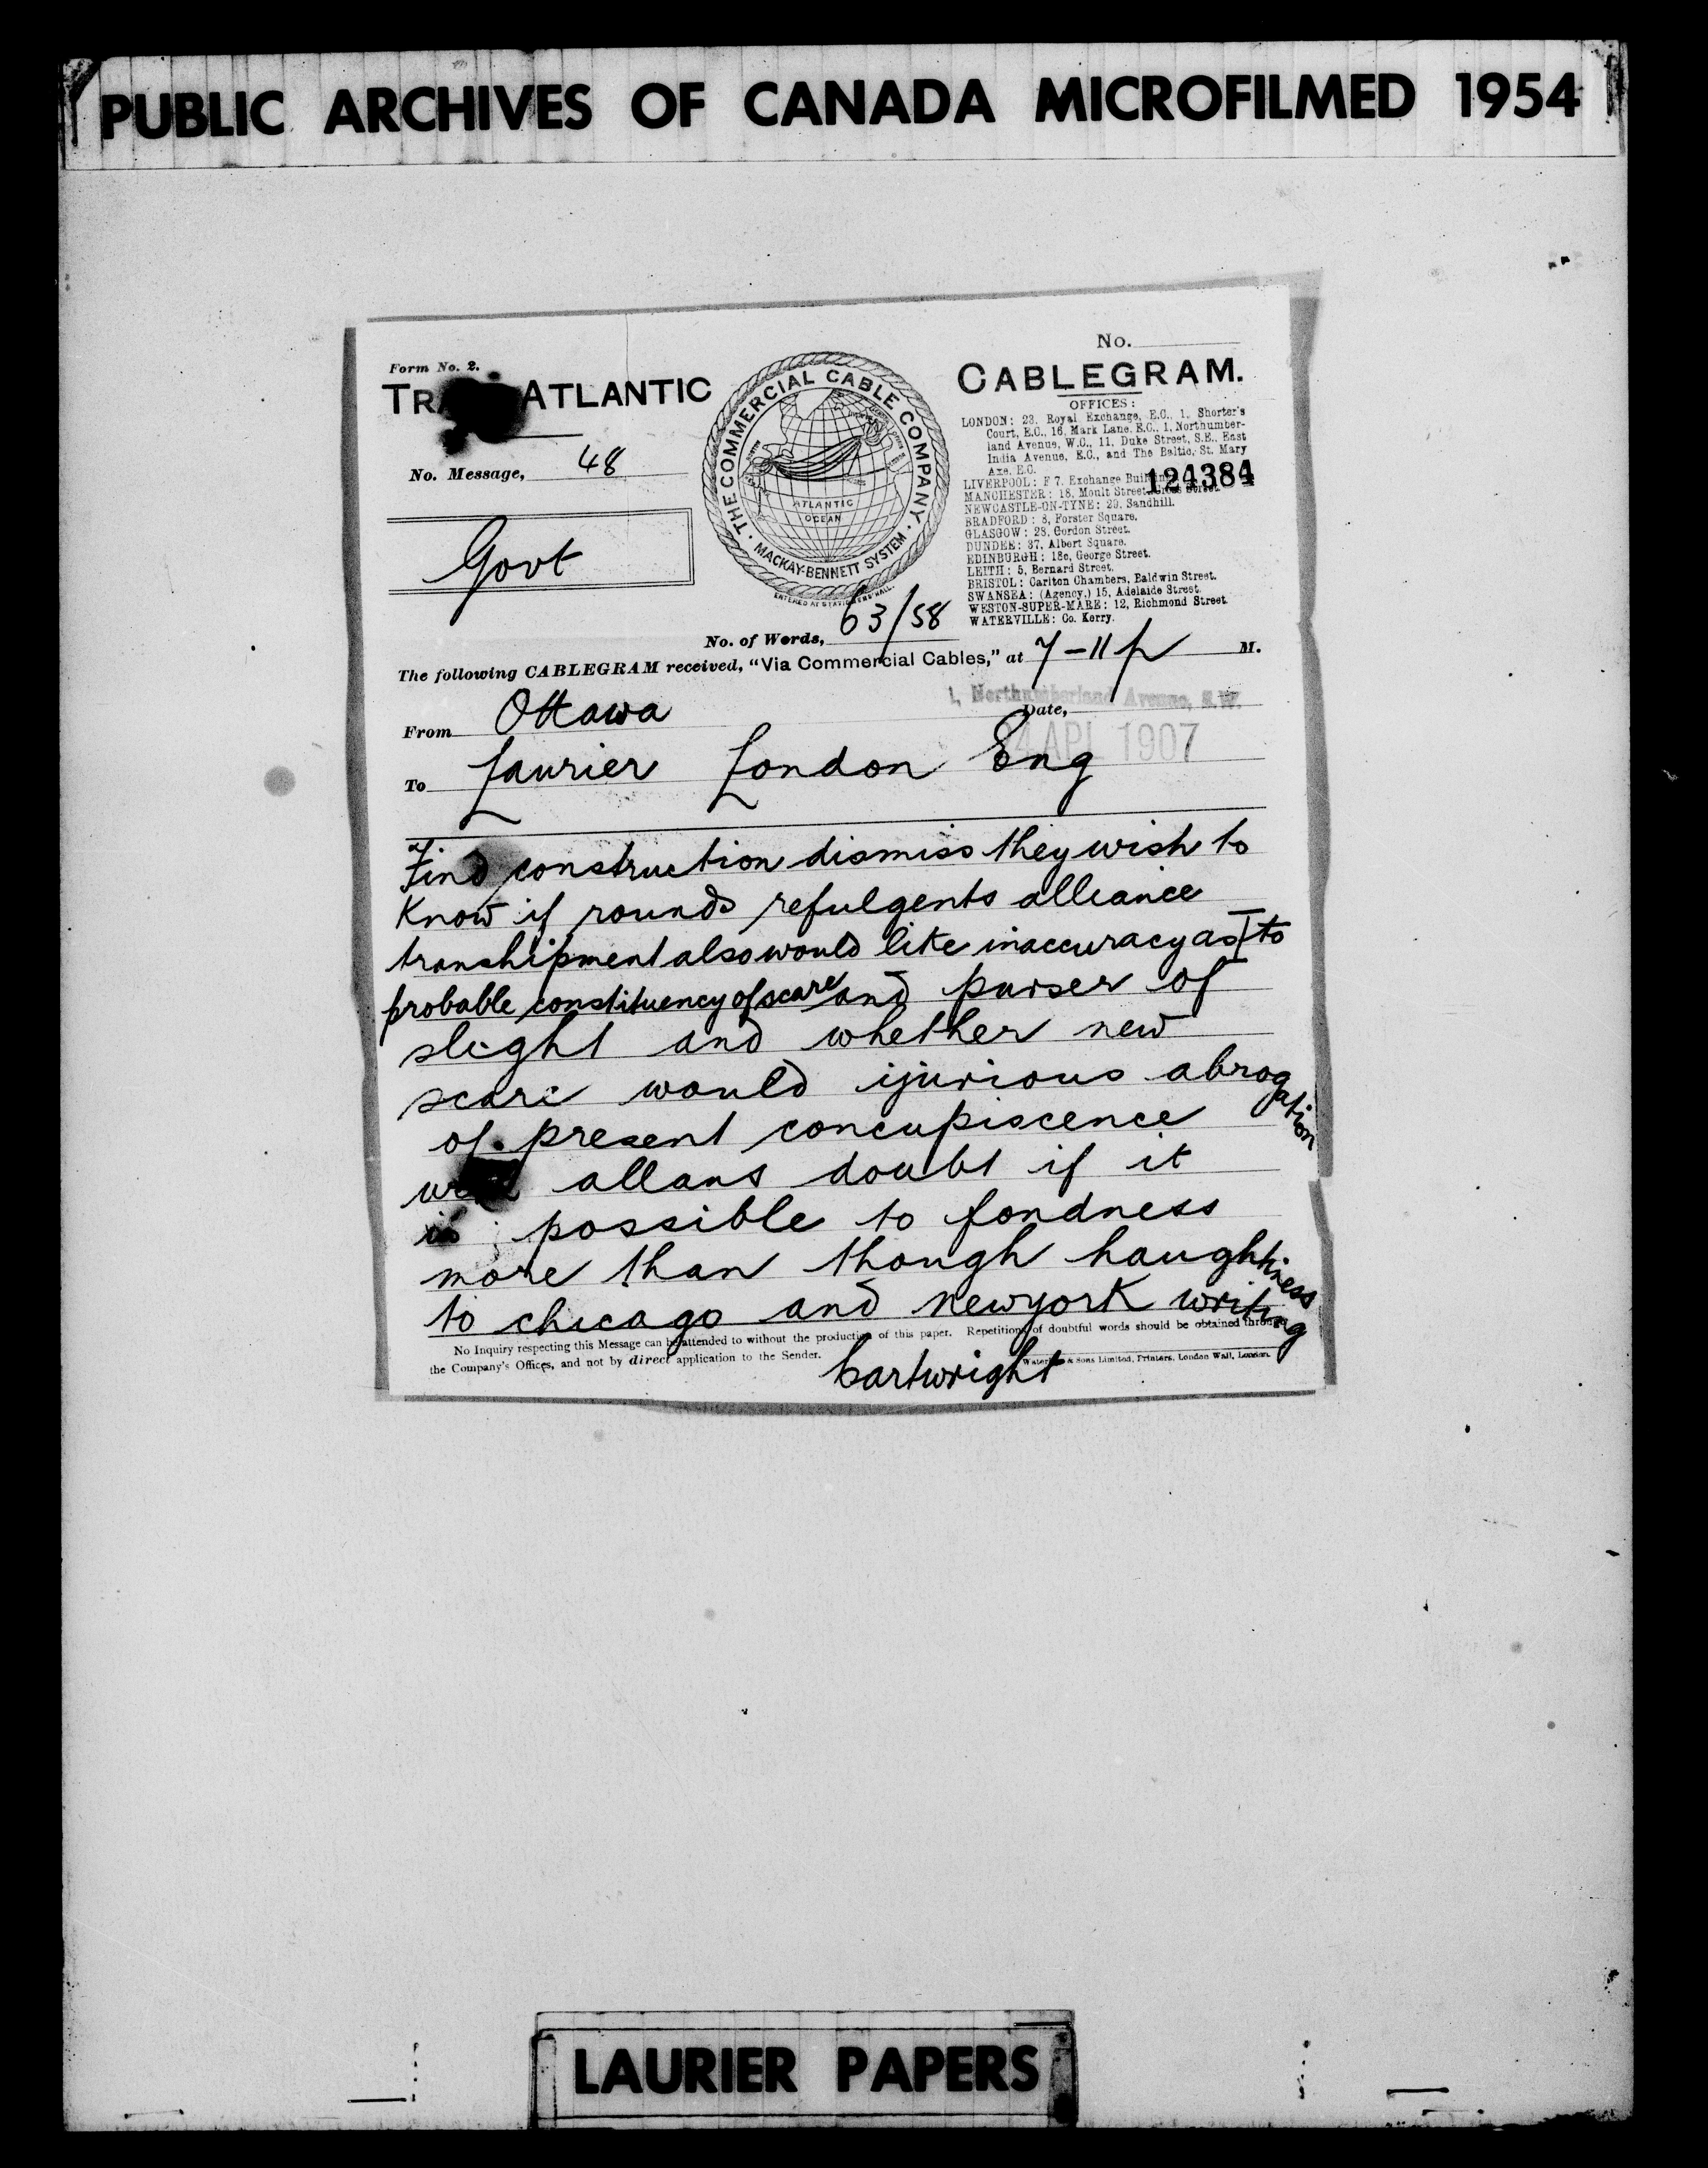 PUBLIC ARCHIVES OF CANADA MICROFILMED 1954
No.
Form No. 2.
ATLANTIC
CABLEGRAM.
THE COMMERCIAL CABLE COMPANY
MACKAY-BENNETT SYSTEM
ATLANTIC
OCEAN
OFFICES:
LONDON: 23, Royal Exchange, E.C., 1, Shorter's
Court, E.C., 16, Mark Lane, E.C., 1, Northumber-
land Avenue, W.C., 11, Duke Street, S.E., East
India Avenue, E.C., and The Baltic, St. Mary
Axe, E.C.
LIVERPOOL: F 7, Exchange
124384
MANCHESTER: 18, Moult Street
NEWCASTLE-ON-TYNE: 29, Sandhill.
BRADFORD: 8, Forster Square.
GLASGOW: 28, Gordon Street.
DUNDEE: 37, Albert Square.
EDINBURGH: 18c, George Street.
LEITH: 5, Bernard Street.
BRISTOL: Carlton Chambers, Baldwin Street.
SWANSEA: (Agency,) 15, Adelaide Street.
WESTON-SUPER-MARE: 12, Richmond Street.
WATERVILLE: Co. Kerry.
No. Message, 48
Govt
No. of Words, 63/58
The following CABLEGRAM received, "Via Commercial Cables," at 7-11 p M.
1, Northumberland Avenue, S.W.
From Ottawa
Date,
4 APL 1907
To Laurier London Eng
Find construction dismiss they wish to
know if rounds refulgents alliance
transhipment also would like inaccuracy as to
probable constituency of scare and purser of
slight and whether new
scare would ijurious abrogation
of present concupiscence
allans doubt if it
is possible to fondness
more than though haughtiness
to chicago and newyork writing
No Inquiry respecting this Message can be attended to without the production of this paper. Repetitions of doubtful words should be obtained through
the Company's Offices, and not by direct application to the Sender.
& Sons Limited, Printers, London Wall, London.
Cartwright
LAURIER PAPERS